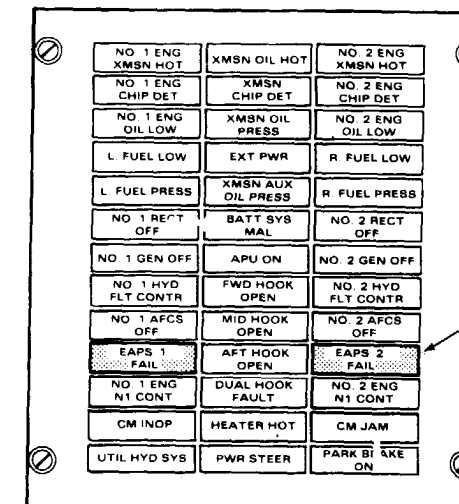 NO. 1 ENG XMSN HOT
XMSN OIL HOT
NO. 2 ENG XMSN HOT
NO. 1 ENG CHIP DET
XMSN CHIP DET
NO. 2 ENG CHIP DET
NO. 1 ENG OIL LOW
XMSN OIL PRESS
NO. 2 ENG OIL LOW
L. FUEL LOW
EXT PWR
R. FUEL LOW
L. FUEL PRESS
XMSN AUX OIL PRESS
R. FUEL PRESS
NO. 1 RECT OFF
BATT SYS MAL
NO. 2 RECT OFF
NO. 1 GEN OFF
APU ON
NO. 2 GEN OFF
NO. 1 HYD FLT CONTR
FWD HOOK OPEN
NO. 2 HYD FLT CONTR
NO. 1 AFCS OFF
MID HOOK OPEN
NO. 2 AFCS OFF
EAPS 1 FAIL
AFT HOOK OPEN
EAPS 2 FAIL
NO. 1 ENG N1 CONT
DUAL HOOK FAULT
NO. 2 ENG N1 CONT
CM INOP
HEATER HOT
CM JAM
UTIL HYD SYS
PWR STEER
PARK BRAKE ON